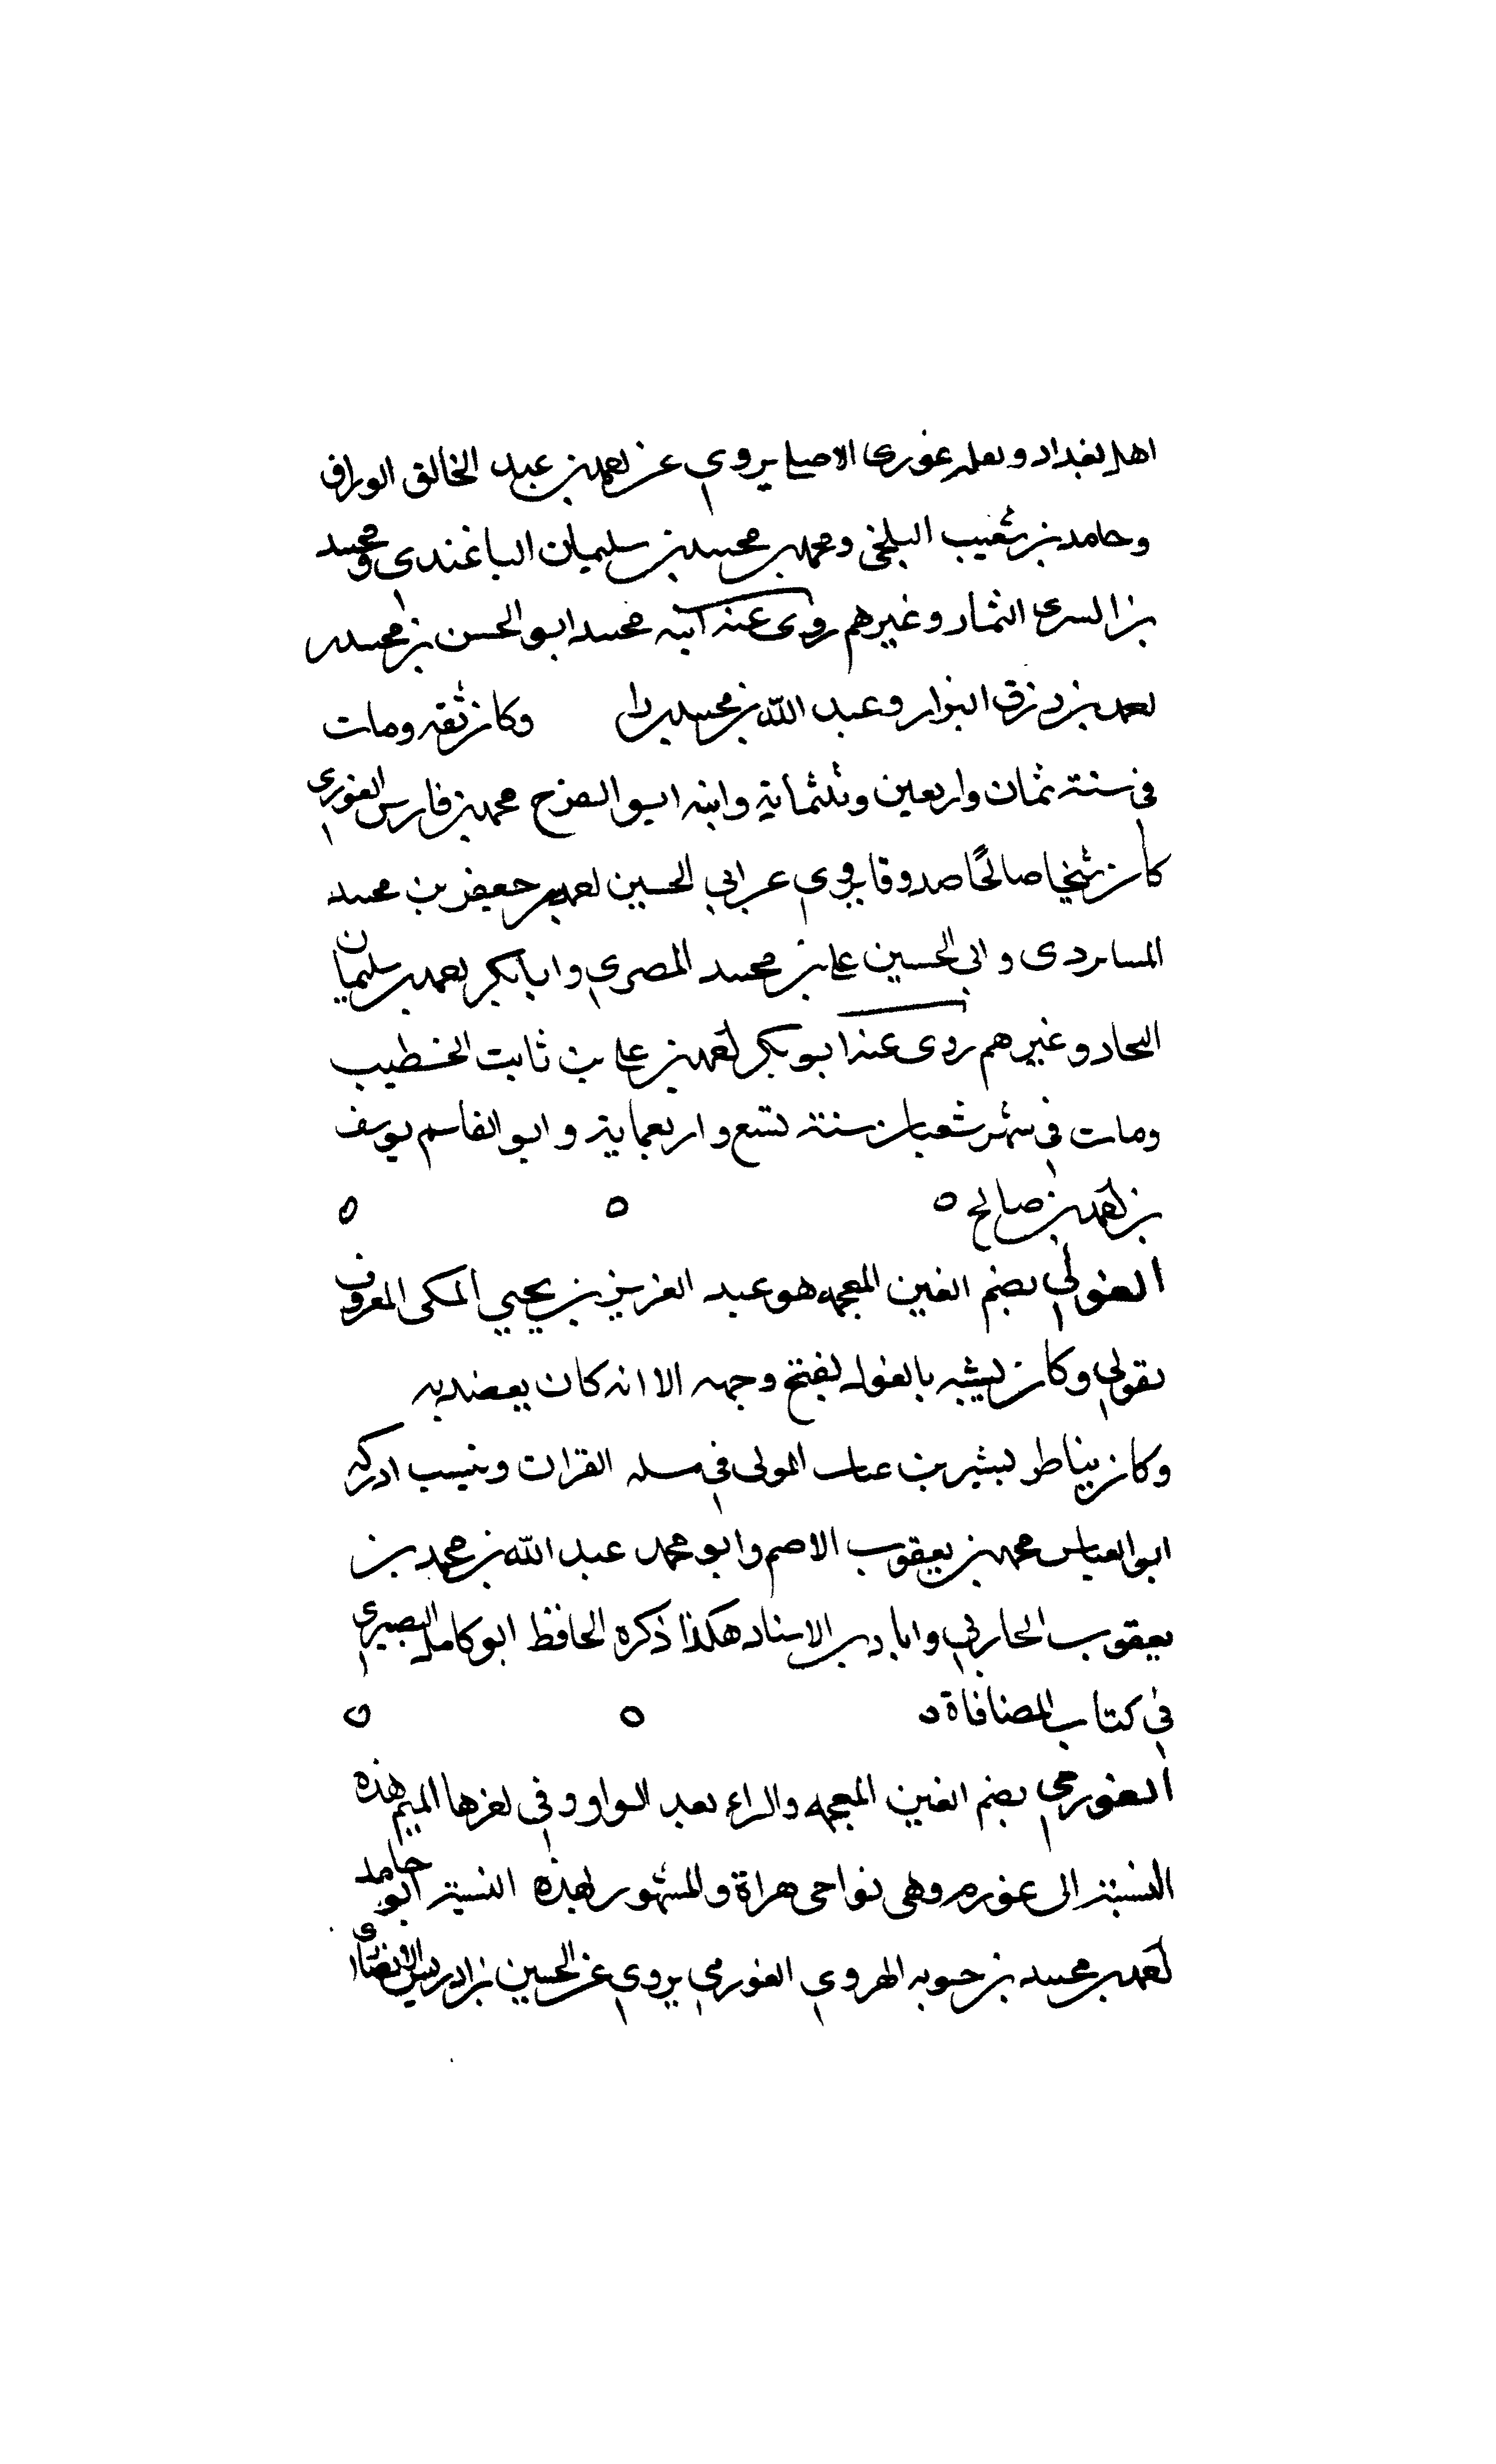 اهل بغداد ولعله غوري الاصل يروي عن احمد بن عبد الخالق الوراق
وحامد بن شعيب البلخي ومحمد بن محمد بن سليمان الباغندي ومحمد
بن السري التمار وغيرهم روى عنه ابنه محمد ابو الحسن بن محمد بن
احمد بن رزق البزار وعبد الله بن محمد وكان ثقه ومات
في سنة ثمان واربعين وثلثماية وابنه ابو الفرج محمد بن فارس الغوري
كان شيخا صالحًا صدوقا يروي عن ابي الحسين احمد بن جعفر بن محمد
المنادى وابي الحسين علي بن محمد المصري وابا بكر احمد بن سليمان
النجاد وغيرهم روى عنه ابو بكر احمد بن علي بن ثابت الخطيب
ومات في شهر شعبان سنة تسع واربعماية وابو القاسم يوسف
بن احمد بن صالح ٥ ٥ ٥
الغولي بضم الغين المعجمه هو عبد العزيز بن يحيي المكي المعروف
بغولي وكان يشبه بالغول لقبح وجهه الا انه كان
وكان يناظر بشير بن المولى في مسله القران ونيسب ادركه
ابو العباس محمد بن يعقوب الاصم وابو محمد عبد الله بن محمد بن
يعقوب الحارثي الاسناد هكذا ذكره الحافظ ابو كامل البصيري
في كتاب المضافاة ٥ ٥ ٥
الغورمي بضم الغين المعجمه والراء بعد الواو وفي اخرها الميم هذه
النسبة الى غورم وهي نواحي هراة والمشهور بهذه النسبة ابو حامد
احمد بن محمد بن حسويه الهروي الغورمي يروي عن الحسين بن ادريس الانصاري